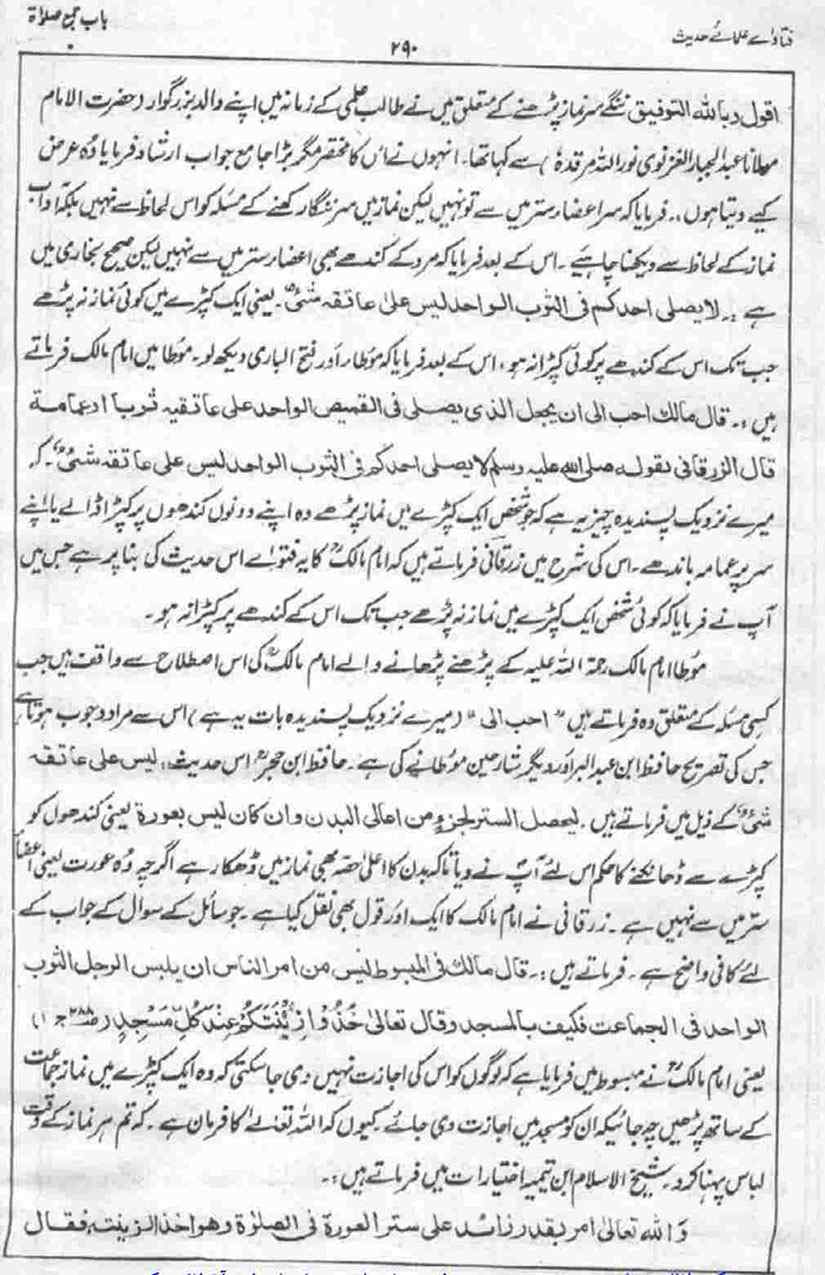 فتاوٰے علمائے حدیث
۲۹۰
باب جمع صلوٰۃ
اقول وباللہ التوفیق ننگے سر نماز پڑھنے کے متعلق میں نے طالب علمی کے زمانہ میں اپنے والد بزرگوار (حضرت الامام
مولانا عبدالجبار الغزنوی نور اللہ مرقدہٗ) سے کہا تھا۔ انہوں نے اس کا مختصر مگر بڑا جامع جواب ارشاد فرمایا وُہ عرض
کیے دیتا ہوں۔۔ فرمایا کہ سر اعضاء ستر میں سے تو نہیں لیکن نماز میں سر ننگا رکھنے کے مسئلہ کو اس لحاظ سے نہیں بلکہ آداب
نماز کے لحاظ سے دیکھنا چاہئیے ۔ اس کے بعد فرمایا کہ مرد کے کندھے بھی اعضاء ستر میں سے نہیں لیکن صحیح بخاری میں
ہے :۔ لا یصلی احدکم فی الثوب الواحد لیس علیٰ عاتقہ شئیٌ۔ یعنی ایک کپڑے میں کوئی نماز نہ پڑھے
جب تک اس کے کندھے پر کوئی کپڑا نہ ہو، اس کے بعد فرمایا کہ مؤطا، اور فتح الباری دیکھ لو۔ مؤطا میں امام مالک فرماتے
ہیں :۔ قال مالک احب الی ان یجعل الذی یصلی فی القمیص الواحد علی عاتقیہ ثوبا اوعمامۃ
قال الزرقانی بقولہ صلی اللہ علیہ وسلم لا یصلی احدکم فی الثوب الواحد لیس علی عاتقہ شئیٌ۔ کہ
میرے نزدیک پسندیدہ چیز یہ ہے کہ جو شخص ایک کپڑے میں نماز پڑھے وہ اپنے دونوں کندھوں پر کپڑا ڈالے یا اپنے
سر پر عمامہ باندھے ۔ اس کی شرح میں زرقانی فرماتے ہیں کہ امام مالکؒ کا یہ فتوٰے اس حدیث کی بنا پر ہے جس میں
آپ نے فرمایا کہ کوئی شخص ایک کپڑے میں نماز نہ پڑھے جب تک اس کے کندھے پر کپڑا نہ ہو ۔
مؤطا امام مالک رحمۃ اللہ علیہ کے پڑھنے پڑھانے والے امام مالکؒ کی اس اصطلاح سے واقف ہیں جب
کسی مسئلہ کے متعلق وہ فرماتے ہیں "احب الی" (میرے نزدیک پسندیدہ بات یہ ہے) اس سے مراد وجوب ہوتا ہے
جس کی تصریح حافظ ابن عبدالبر اور دیگر شارحین مؤطا نے کی ہے ۔ حافظ ابن حجرؒ اس حدیث، لیس علی عاتقہ
شئیٌ کے ذیل میں فرماتے ہیں ۔ لیحصل الستر لجزءٍ من اعالی البدن وان کان لیس بعورۃ یعنی کندھوں کو
کپڑے سے ڈھانکنے کا حکم اس لئے آپؐ نے دیا تاکہ بدن کا اعلیٰ حصہ بھی نماز میں ڈھکا رہے اگرچہ وُہ عورت یعنی اعضاء
ستر میں سے نہیں ہے ۔ زرقانی نے امام مالک کا ایک اور قول بھی نقل کیا ہے ۔ جو سائل کے سوال کے جواب کے
لئے کافی واضح ہے ۔ فرماتے ہیں :۔ قال مالک فی المبسوط لیس من امر الناس ان یلبس الرجل الثوب
الواحد فی الجماعت فکیف بالمسجد وقال تعالیٰ خُذُوْا زِیْنَتَکُمْ عِنْدَ کُلِّ مَسْجِدٍ (ص ۲۸۸ ج ۱)
یعنی امام مالکؒ نے مبسوط میں فرمایا ہے کہ لوگوں کو اس کی اجازت نہیں دی جا سکتی کہ وہ ایک کپڑے میں نماز جماعت
کے ساتھ پڑھیں چہ جائیکہ ان کو مسجد میں اجازت دی جائے ۔ کیوں کہ اللہ تعالےٰ کا فرمان ہے ۔ کہ تم ہر نماز کے وقت
لباس پہنا کرو۔ شیخ الاسلام ابن تیمیہ اختیارات میں فرماتے ہیں :۔
وَاللہ تعالیٰ امر بقدر زائد علی ستر العورۃ فی الصلوٰۃ وھو اخذ الزینتہ فقال